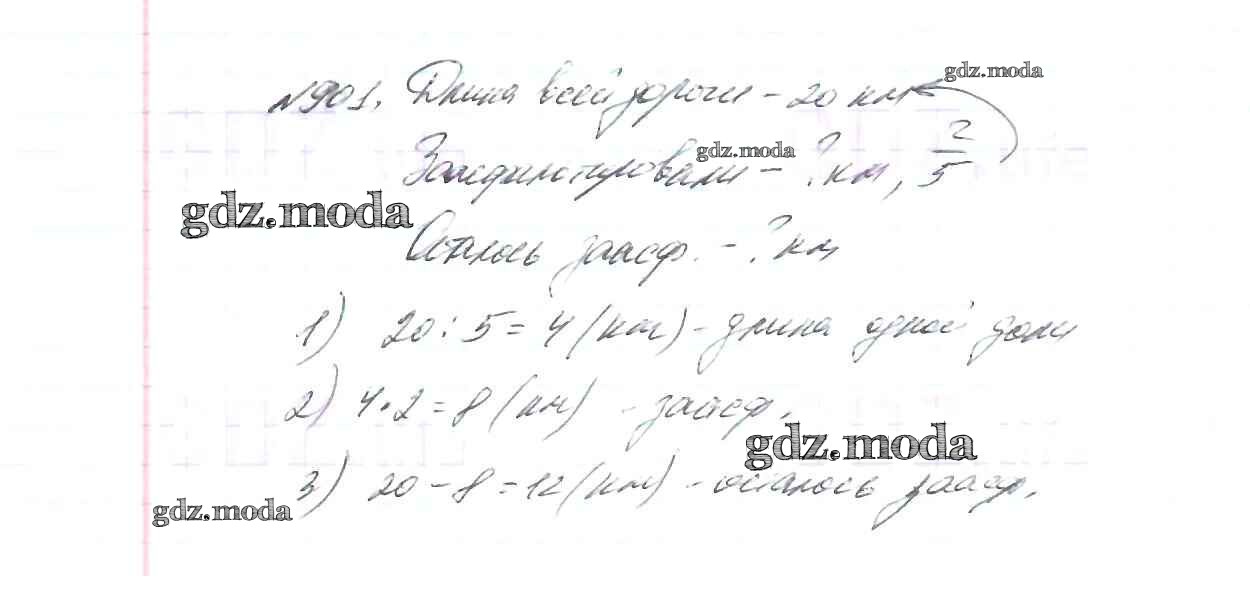 №901. Длина всей дороги - 20 км
gdz.moda
Заасфальтировали - ? км, 2/5
gdz.moda
gdz.moda
Осталось заасф. - ? км
1) 20 : 5 = 4 (км) - длина одной доли
2) 4 · 2 = 8 (км) - заасф.
gdz.moda
3) 20 - 8 = 12 (км) - осталось заасф.
gdz.moda